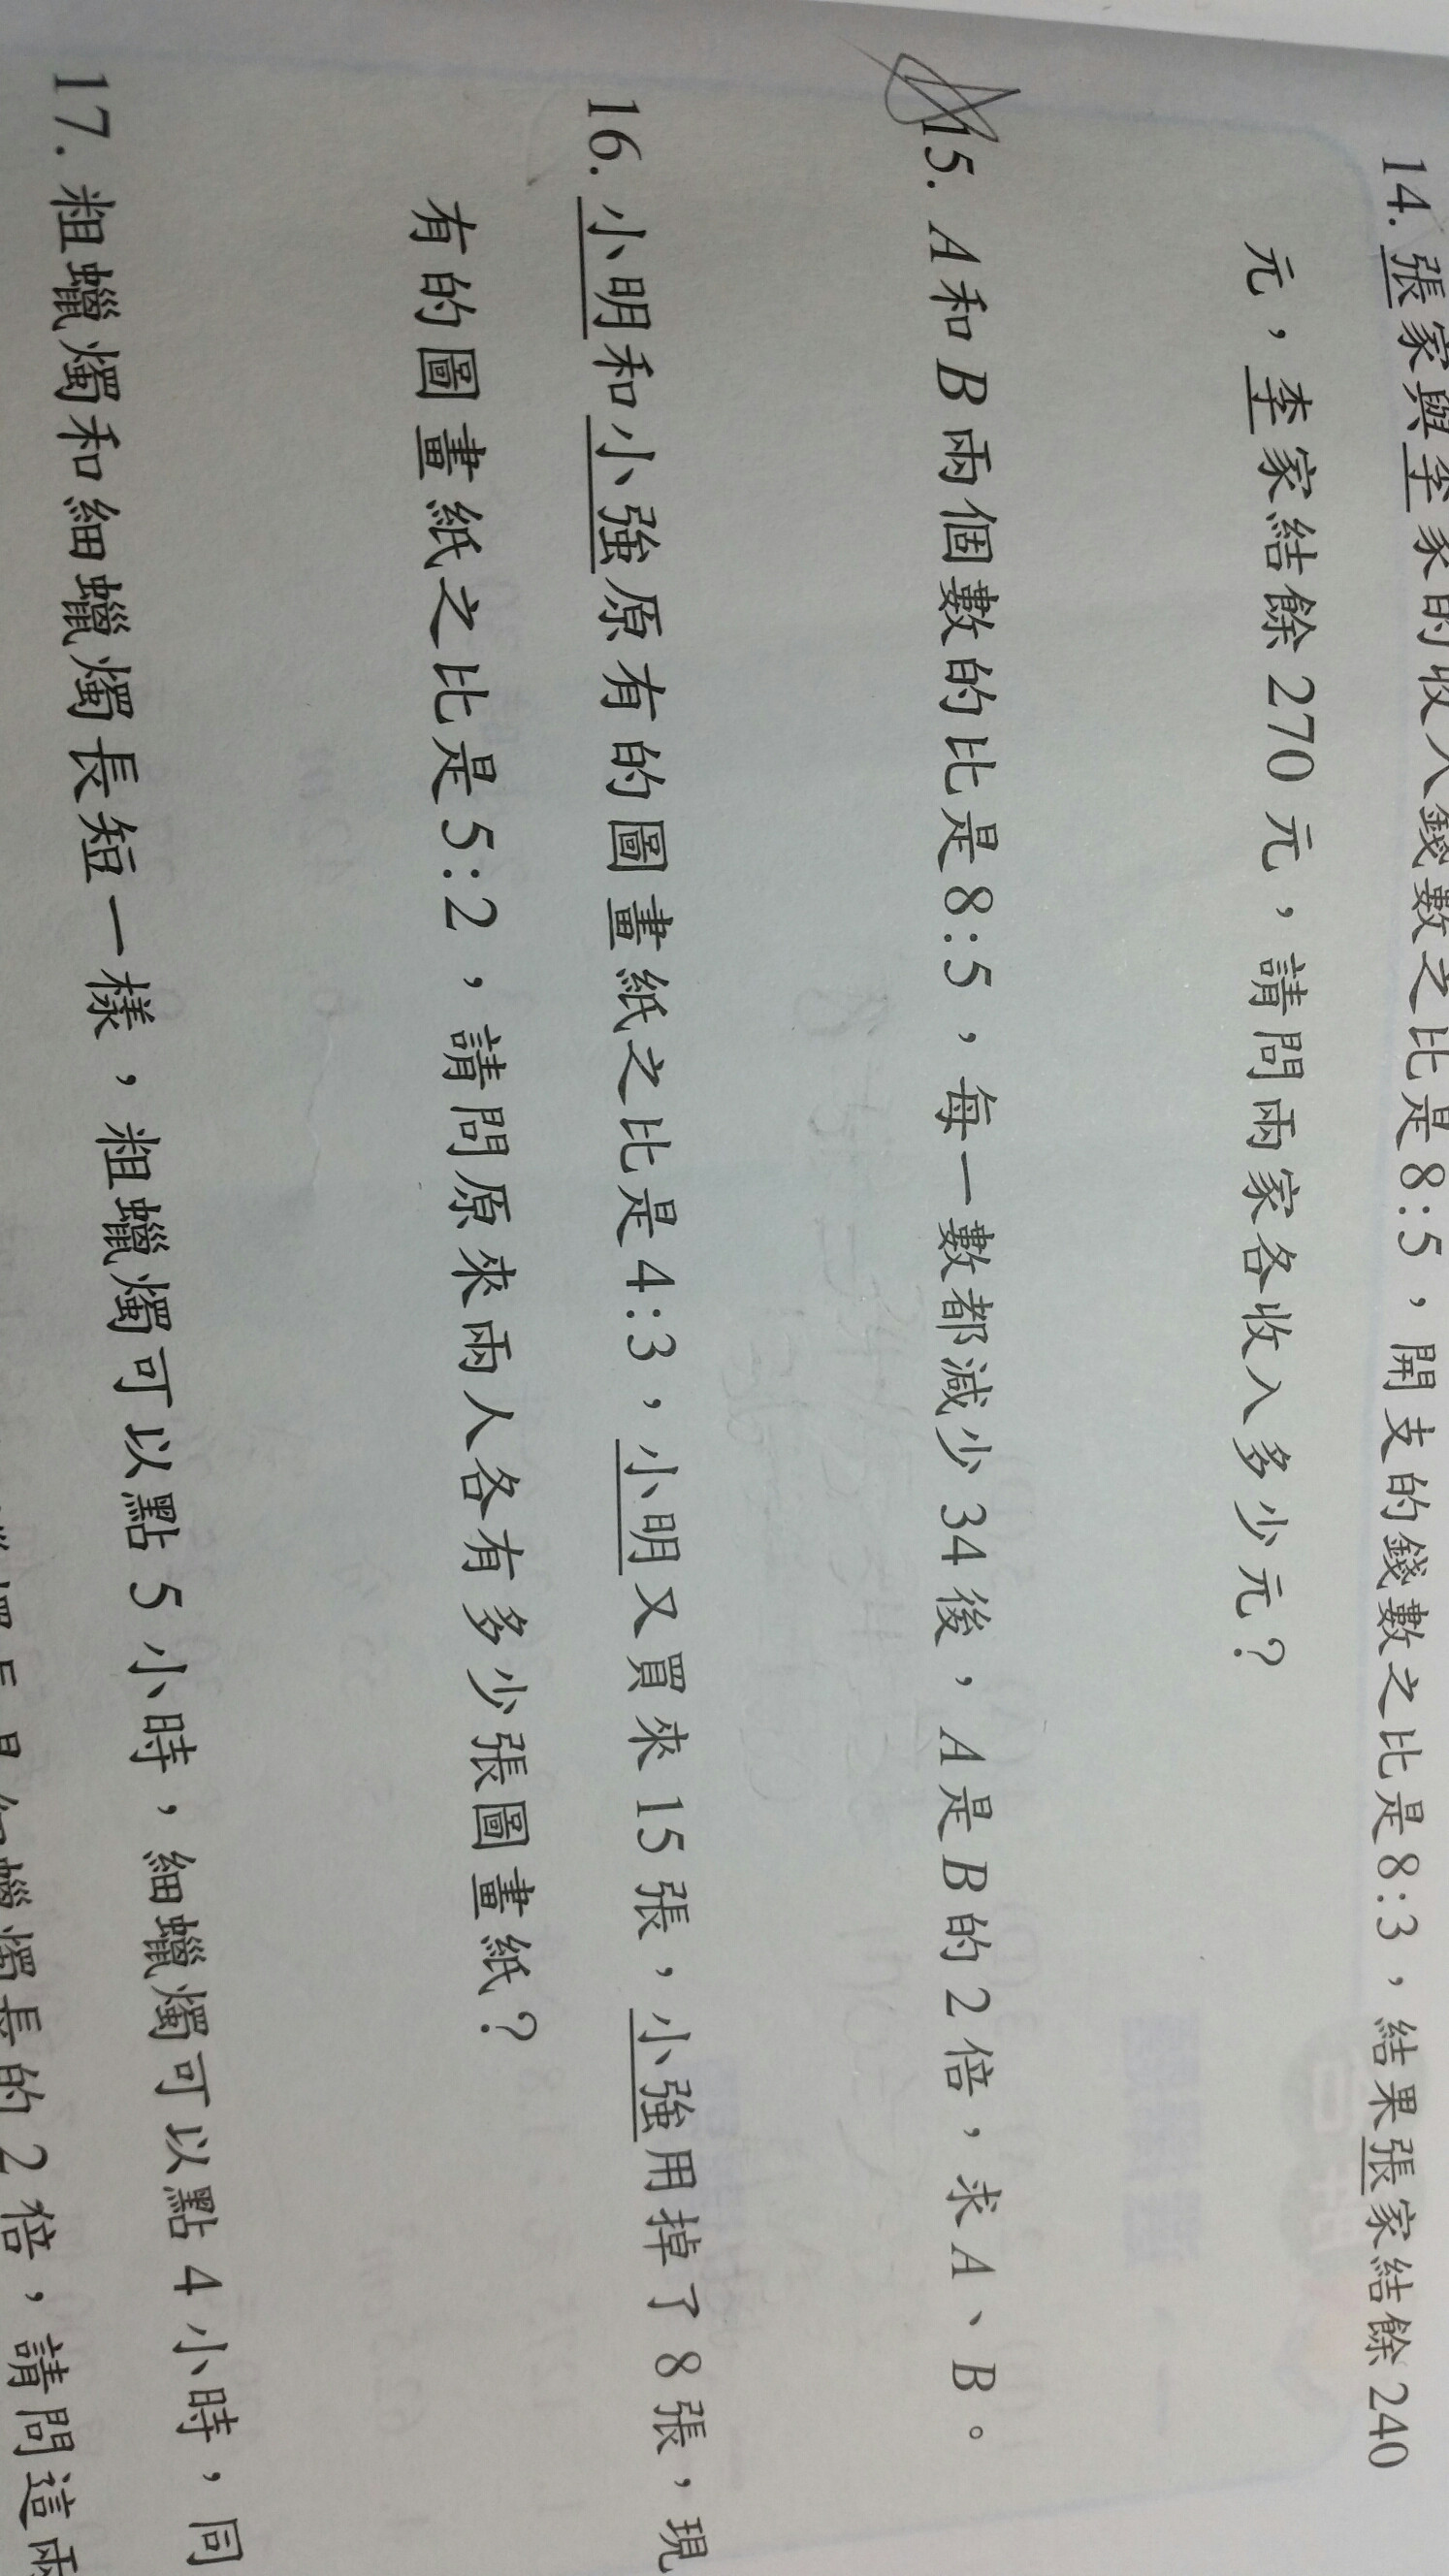 14. 張家與李家的收入錢數之比是8:5，開支的錢數之比是8:3，結果張家結餘240
元，李家結餘270元，請問兩家各收入多少元？
15. A和B兩個數的比是8:5，每一數都減少34後，A是B的2倍，求A、B。
16. 小明和小強原有的圖畫紙之比是4:3，小明又買來15張，小強用掉了8張，現
有的圖畫紙之比是5:2，請問原來兩人各有多少張圖畫紙？
17. 粗蠟燭和細蠟燭長短一樣，粗蠟燭可以點5小時，細蠟燭可以點4小時，同
蠟燭長的2倍，請問這兩